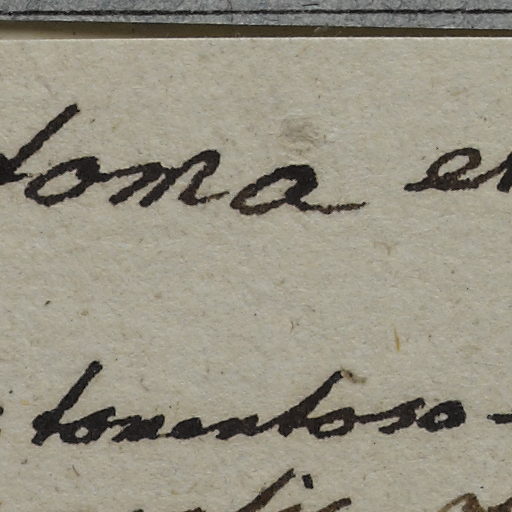 toma e
tomentoso-